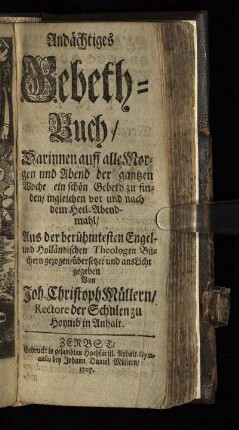 Andächtiges
Gebeth-
Buch/
Darinnen auff alle Mor-
gen und Abend der gantzen
Woche ein schön Gebeth zu fin-
den/ ingleichen vor und nach
dem Heil. Abend-
mahl/
Aus der berühmtesten Engel-
und Holländischen Theologen Bü-
chern gezogen/ übersetzet und ans Licht
gegeben
Von
Joh. Christoph Müllern/
Rectore der Schulen zu
Hoymb in Anhalt.
ZERBST/
Gedruckt in gesambten Hochfürstl. Anhalt. Gym-
nasio bey Johann Daniel Müllern/
1707.